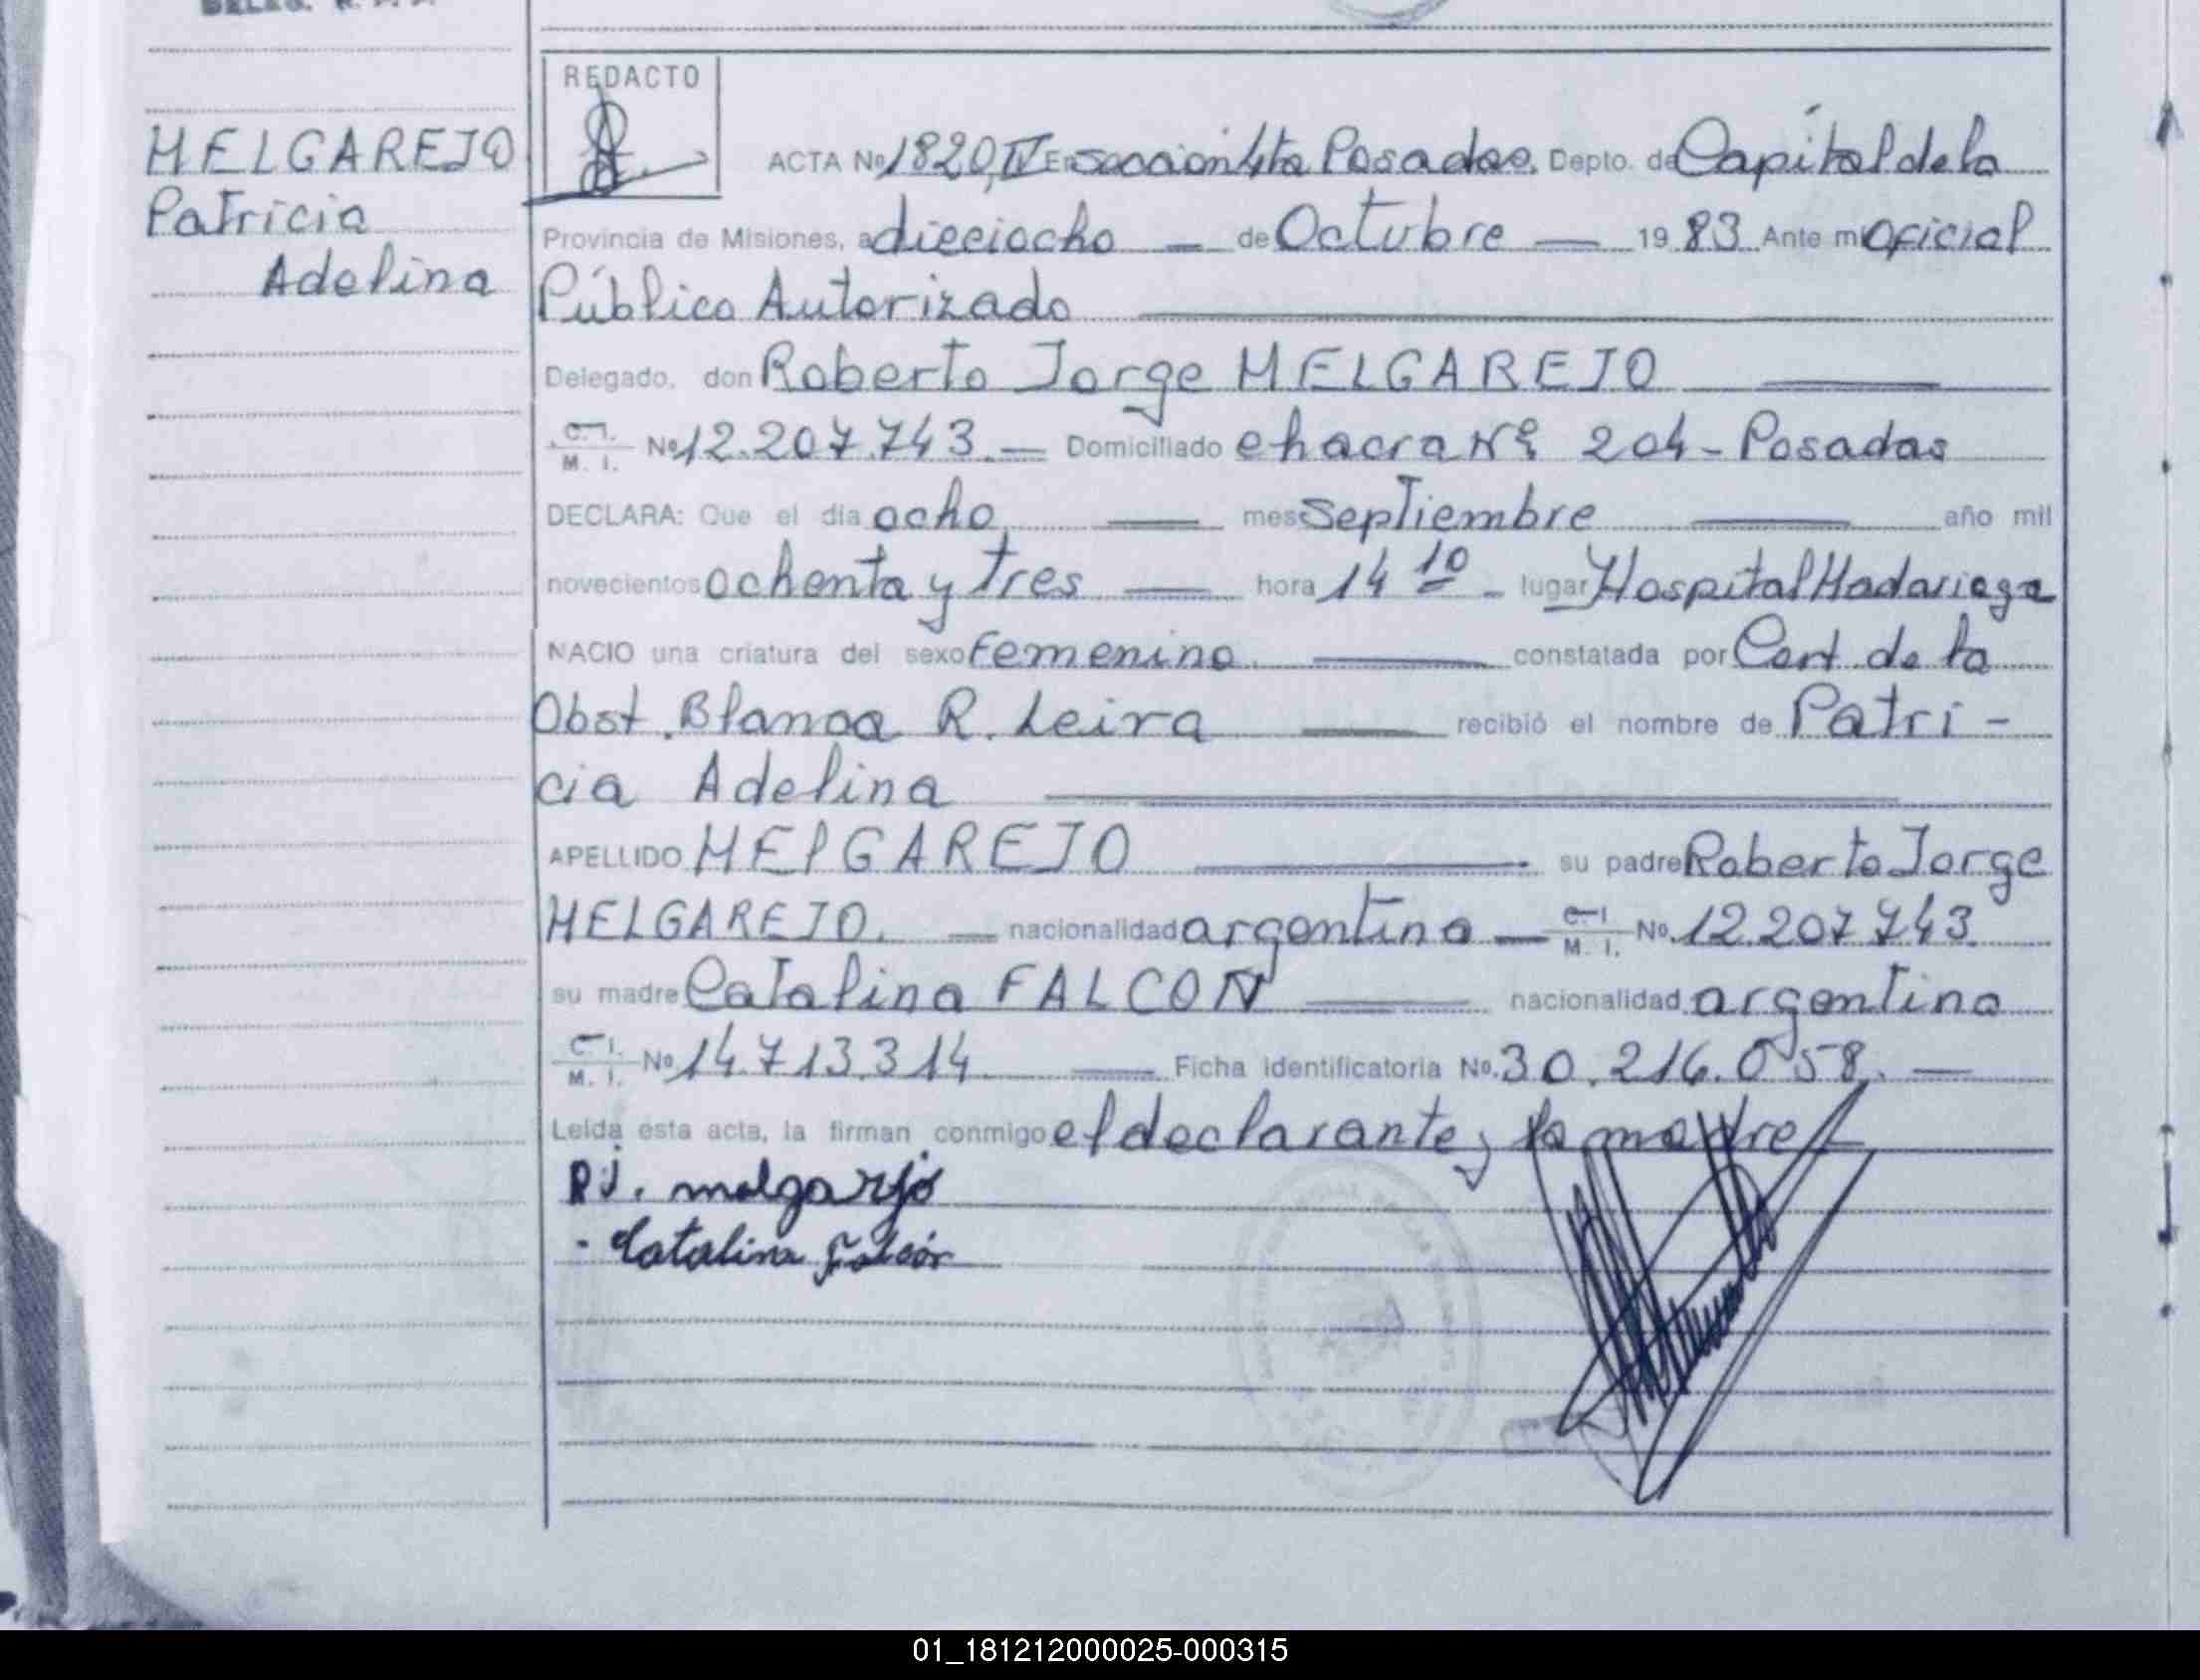 MELGAREJO
Patricia
Adelina
REDACTO
ACTA Nº 1820, IV En sección 4ta Posadas, Depto. de Capital de la
Provincia de Misiones, a dieciocho — de Octubre — 19 83 Ante mi Oficial
Público Autorizado
Delegado, don Roberto Jorge MELGAREJO
C. I. M. I. Nº 12.207.743.— Domiciliado chacra Nº 204 - Posadas
DECLARA: Que el día ocho — mes Septiembre — año mil
novecientos ochenta y tres — hora 14 10 - lugar Hospital Madariaga
NACIO una criatura del sexo Femenino. — constatada por Cert. de la
Obst. Blanca R. Leiva — recibió el nombre de Patri -
cia Adelina
APELLIDO MELGAREJO — su padre Roberto Jorge
MELGAREJO. — nacionalidad argentina — C. I. M. I. Nº 12.207.743
su madre Catalina FALCON — nacionalidad argentina
C. I. M. I. Nº 14.713.314 — Ficha identificatoria Nº 30.216.058. —
Leída esta acta, la firman conmigo el declarante y la madre
R J. melgarejo
- Catalina Falcón
01_181212000025-000315